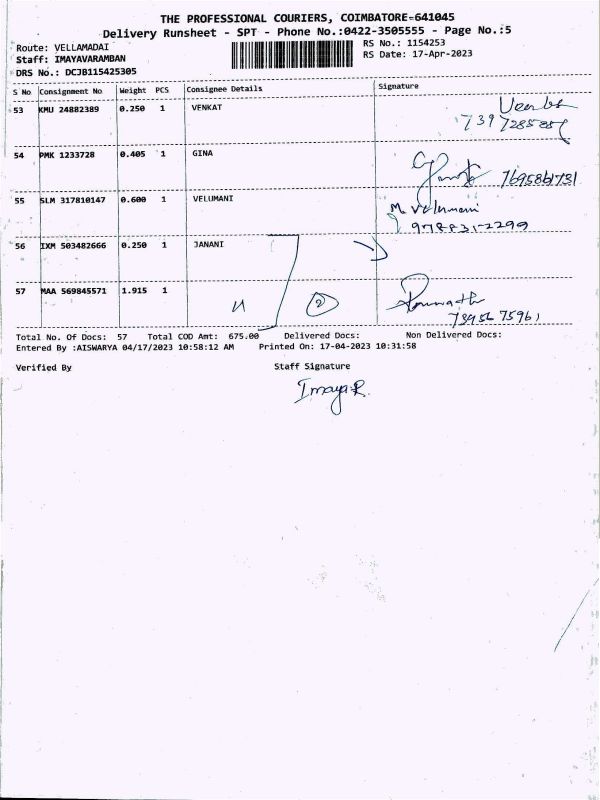 THE PROFESSIONAL COURIERS, COIMBATORE-641045
Delivery Runsheet - SPT - Phone No.:0422-3505555 - Page No.:5
Route: VELLAMADAI
RS No.: 1154253
Staff: IMAYAVARAMBAN
RS Date: 17-Apr-2023
DRS No.: DCJB115425305
S No Consignment No Weight PCS Consignee Details Signature
53 KMU 24882389 0.250 1 VENKAT
54 PMK 1233728 0.405 1 GINA
7695861731
55 SLM 317810147 0.600 1 VELUMANI
M. Velumani
56 IXM 503482666 0.250 1 JANANI
57 MAA 569845571 1.915 1
2
Total No. Of Docs: 57 Total COD Amt: 675.00 Delivered Docs: Non Delivered Docs:
Entered By :AISWARYA 04/17/2023 10:58:12 AM Printed On: 17-04-2023 10:31:58
Verified By Staff Signature
Imaya.R